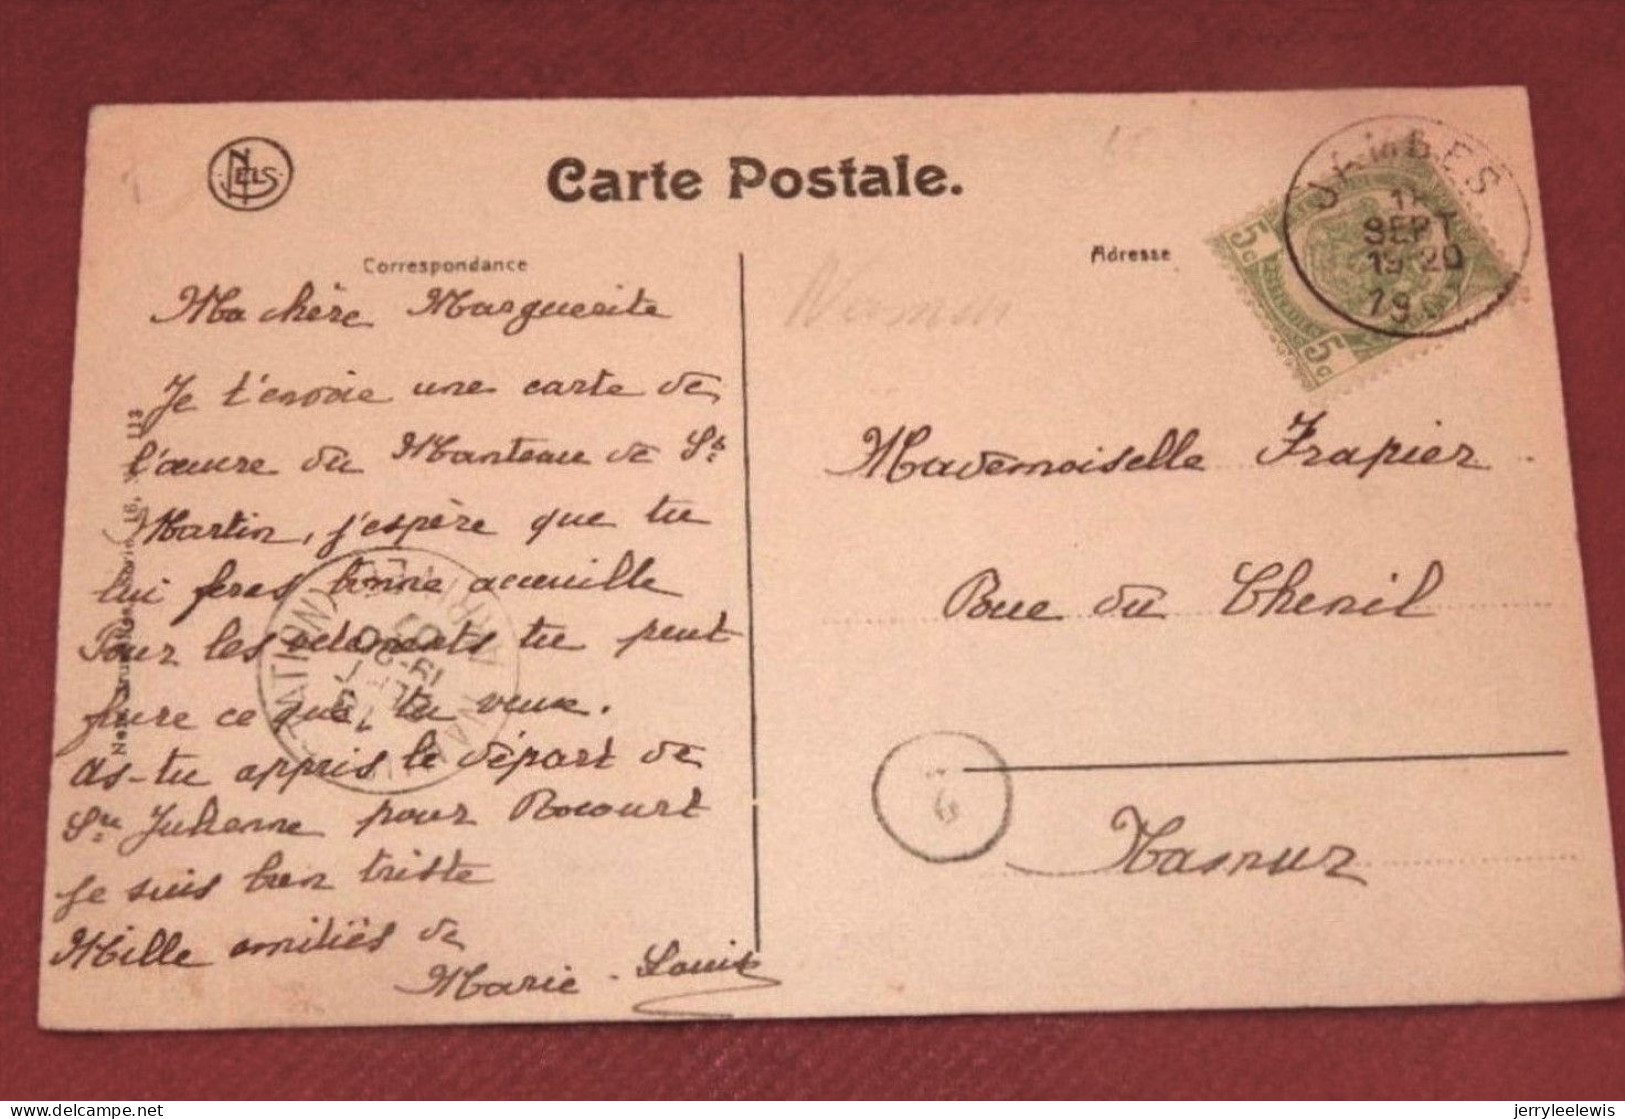 NELS
Carte Postale.
Correspondance
Adresse
Ma chère Marguerite
Je t'envoie une carte de
l'œuvre du Manteau de St
Martin, j'espère que tu
lui feras bonne accueille
Pour les vetements tu peut
faire ce que tu veux.
As-tu appris le départ de
Sr Julienne pour Rocourt
je suis bien triste
Mille amitiés de
Marie-Louise
Namur
5c
5c
SEPT
19-20
19
Mademoiselle Frapier
Rue du Chenil
Namur
6
118
jerryleelewis